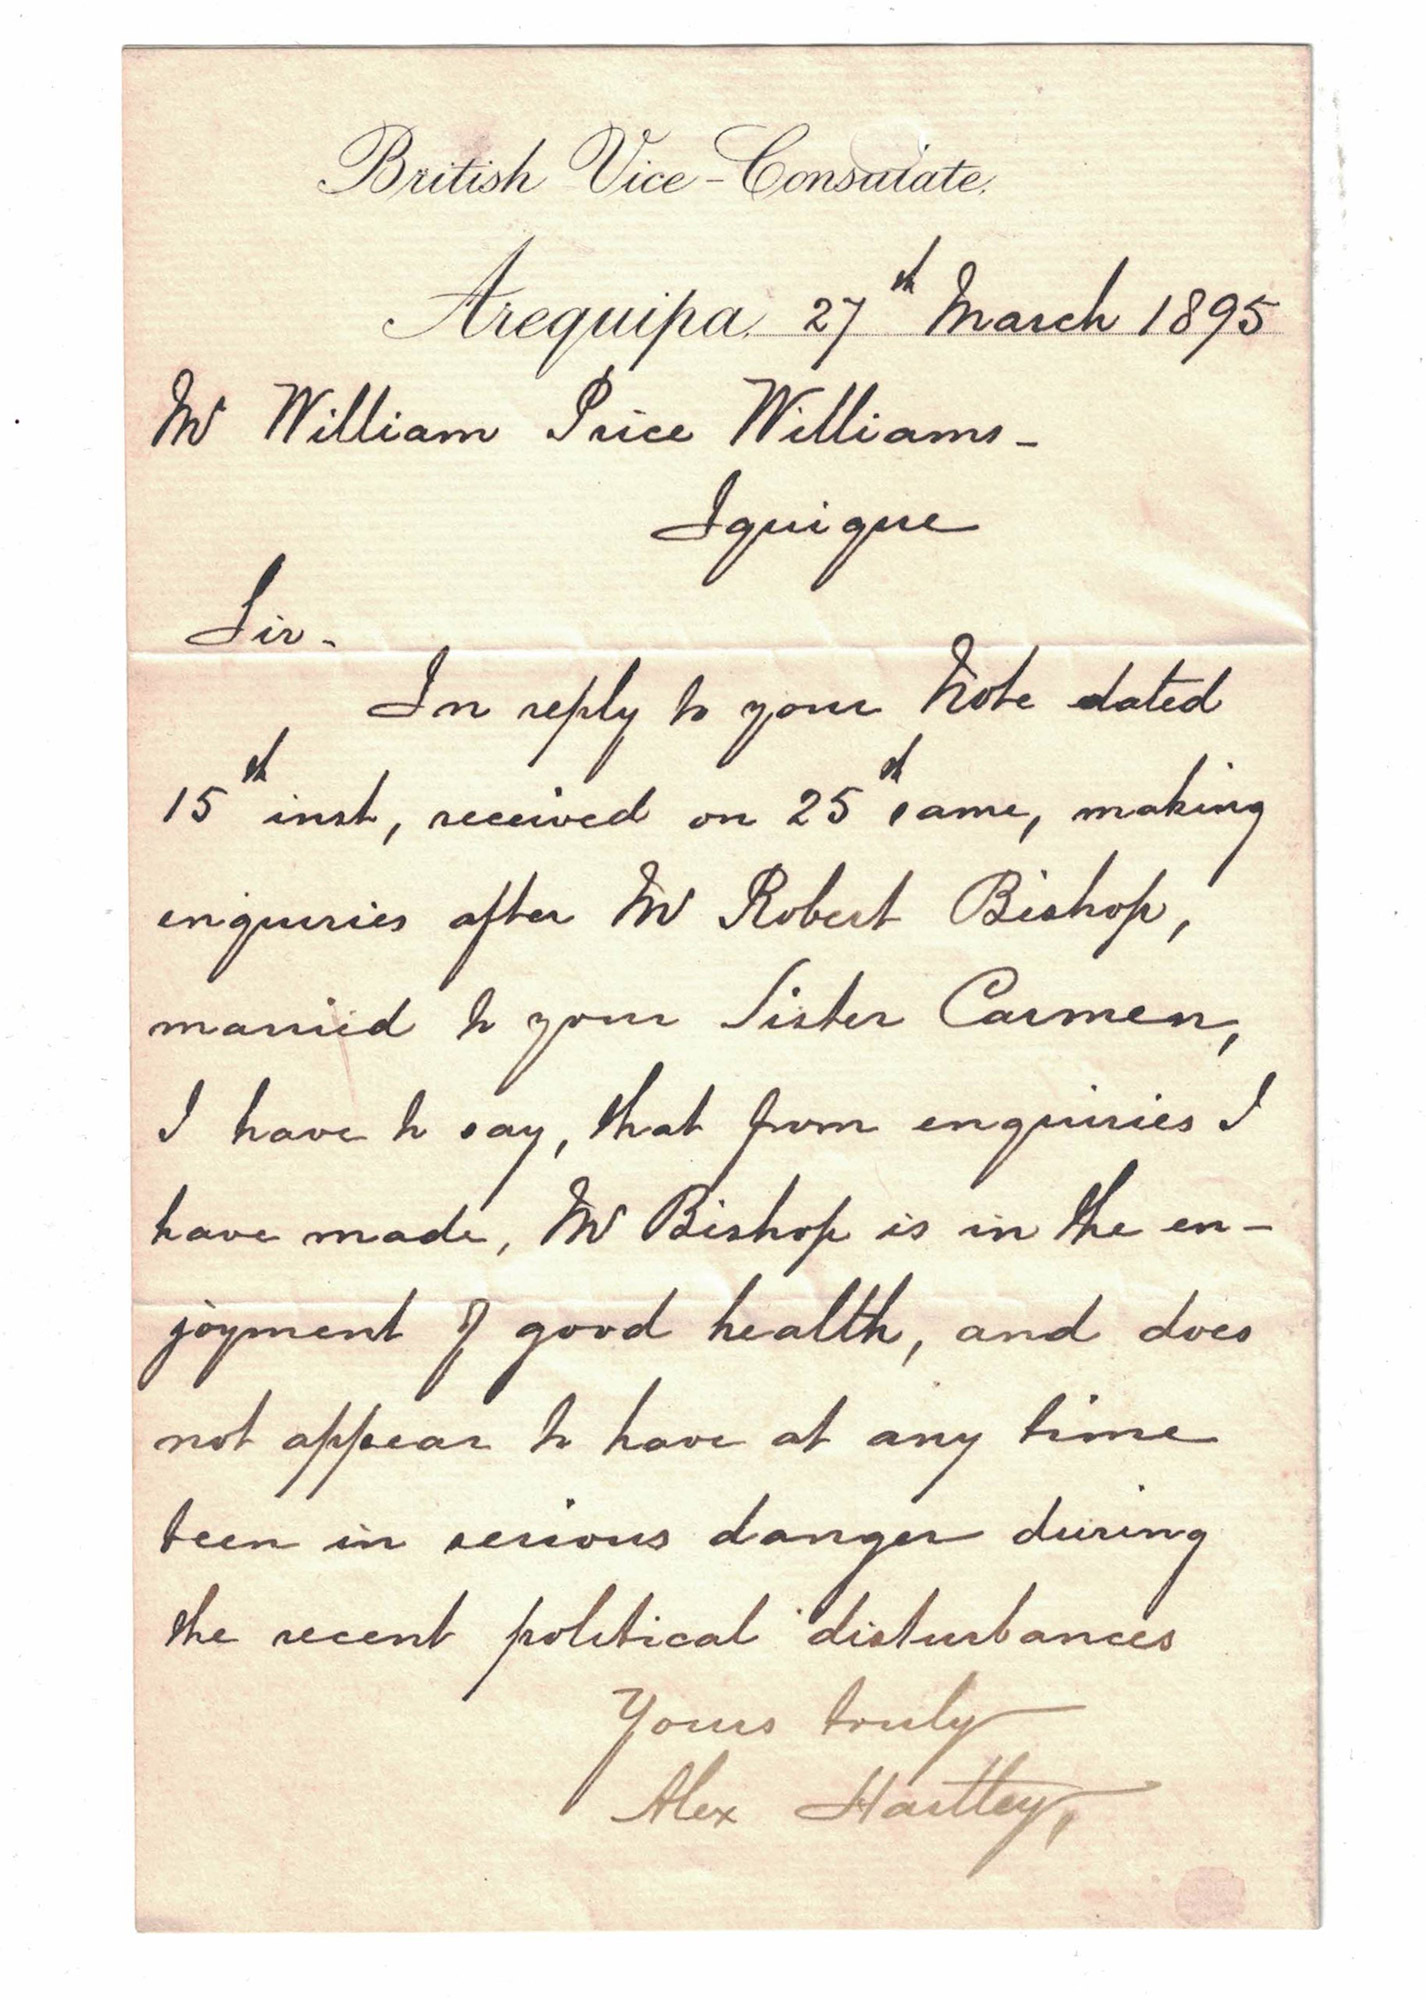 British Vice-Consulate.
Arequipa. 27th March 1895
Mr William Price Williams -
Iquique
Sir -
In reply to your Note dated
15th inst, received on 25th same, making
enquiries after Mr Robert Bishop,
married to your Sister Carmen,
I have to say, that from enquiries I
have made, Mr Bishop is in the en-
joyment of good health, and does
not appear to have at any time
been in serious danger during
the recent political disturbances
Yours truly
Alex Hartley,